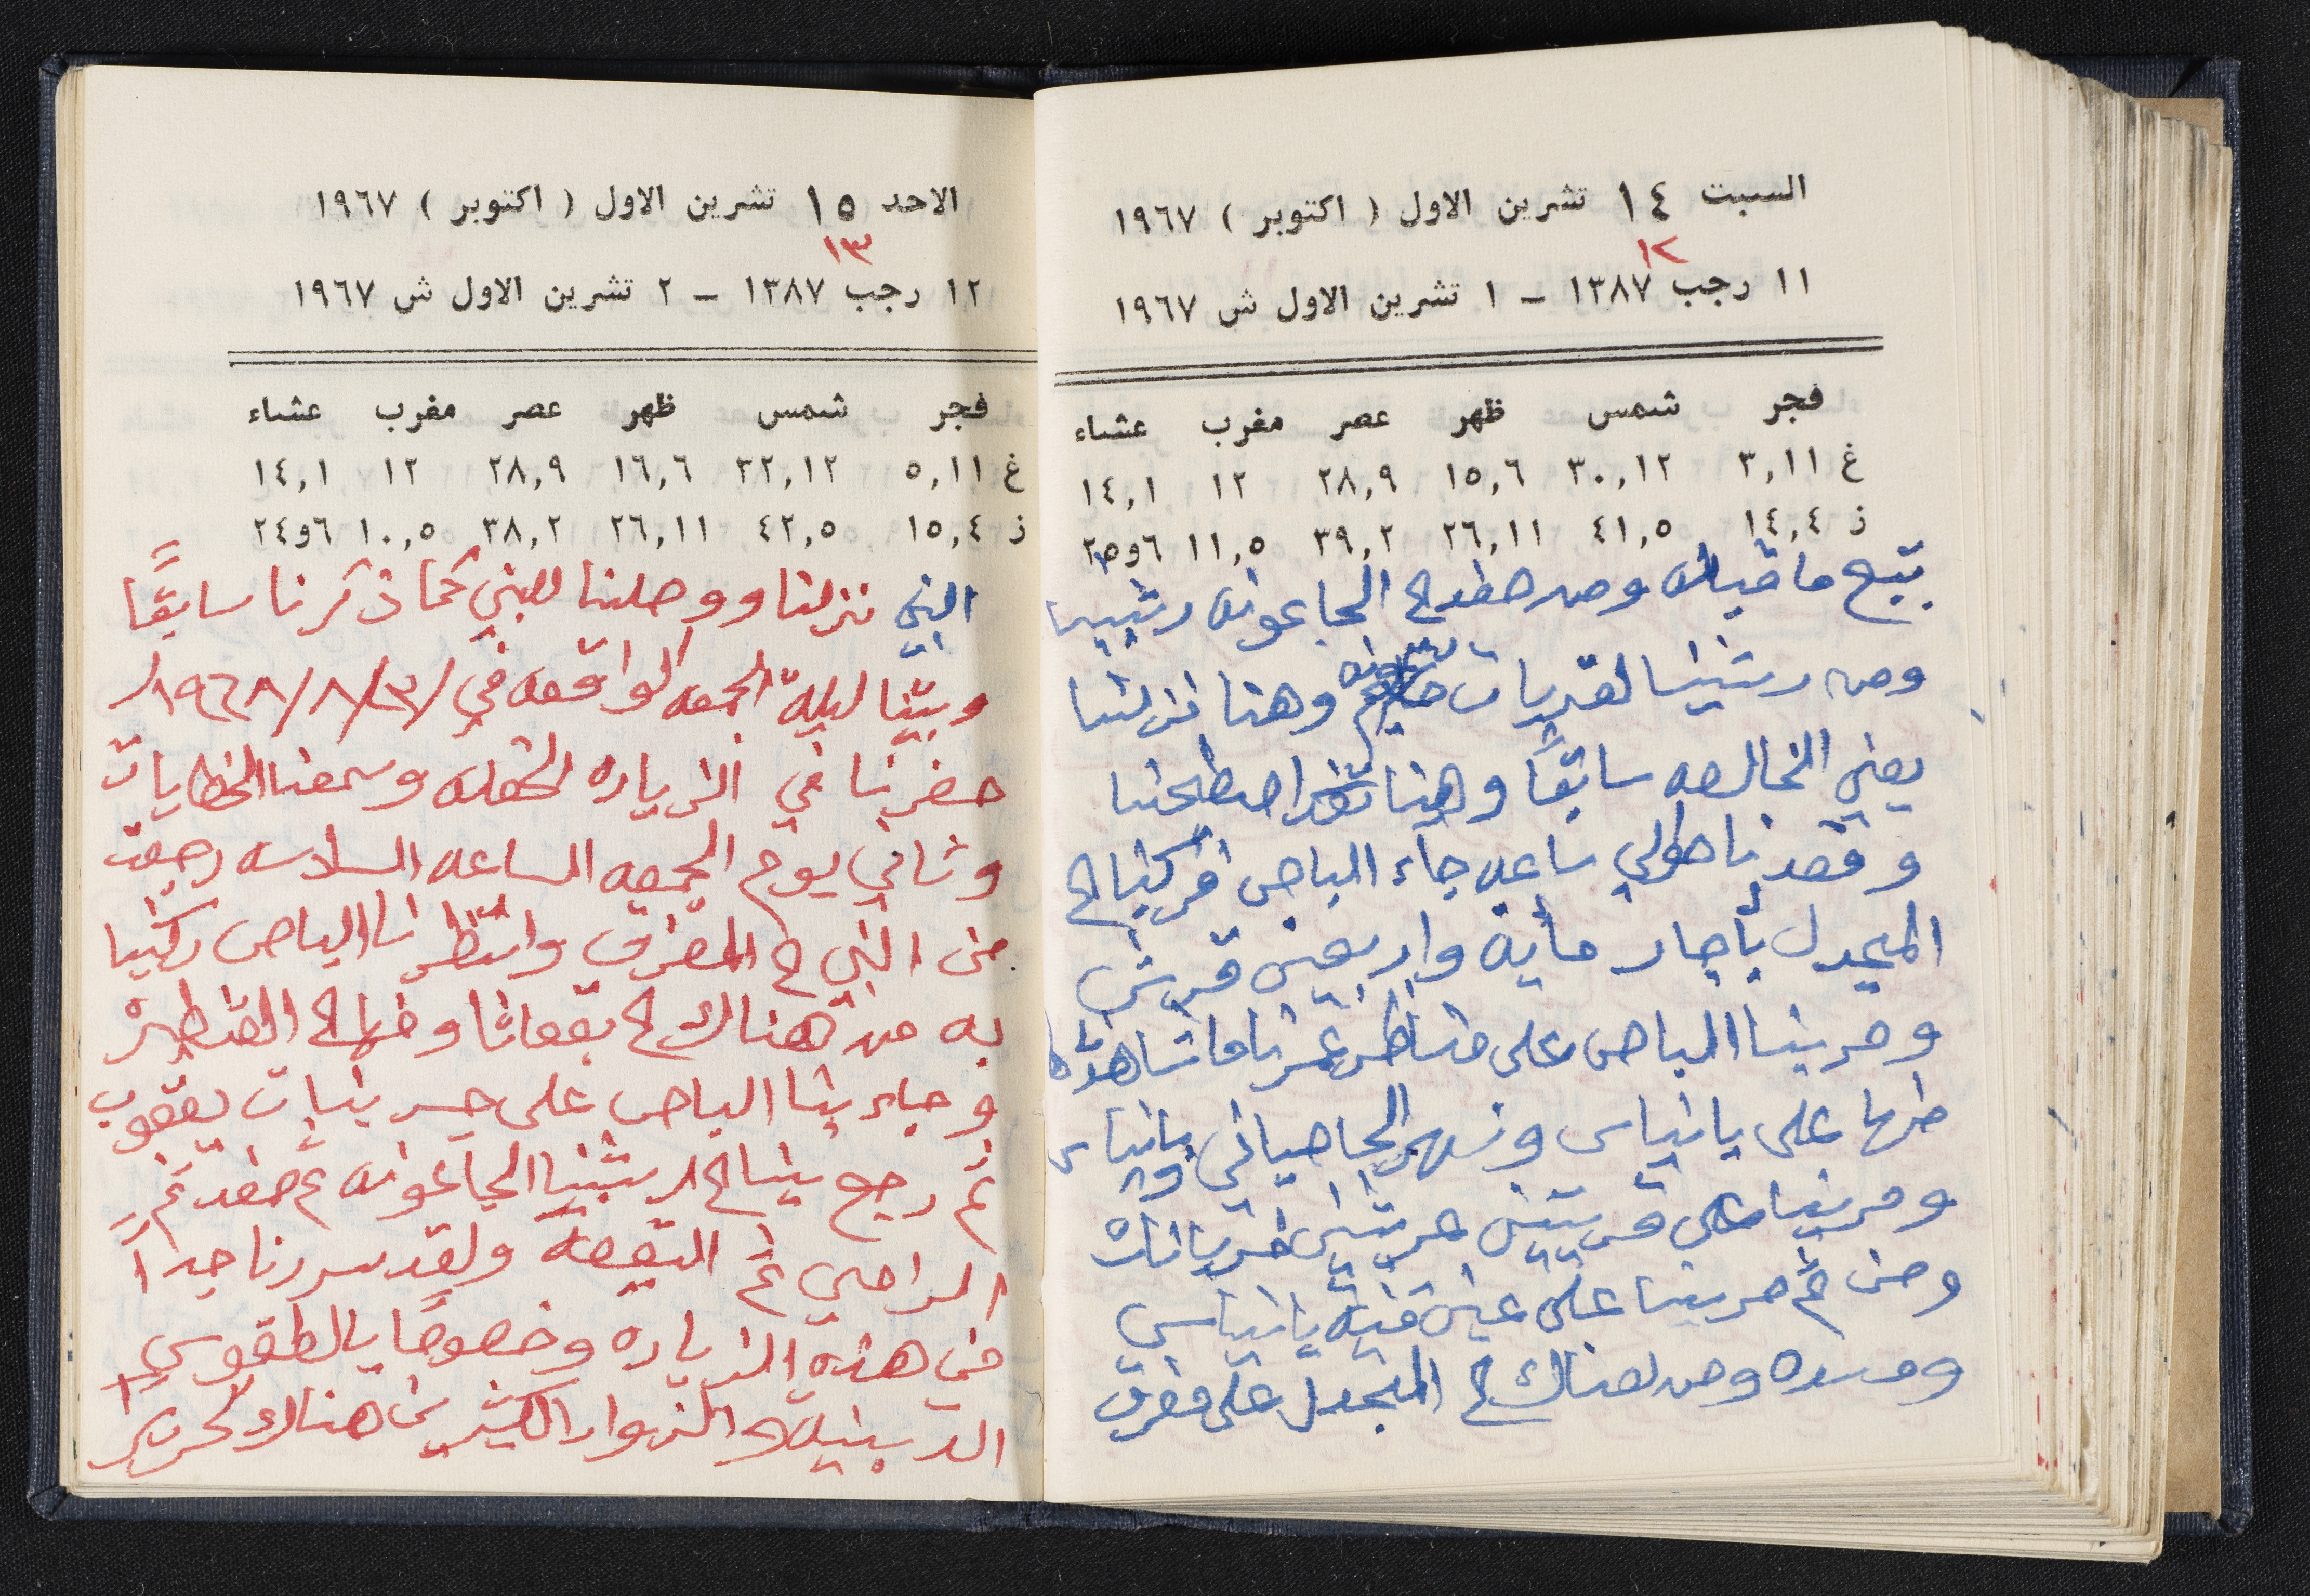 السبت ١٤ تشرين الاول ( اكتوبر ) ١٩٦٧
١٢
١١ رجب ١٣٨٧ – ١ تشرين الاول ش ١٩٦٧
فجر شمس ظهر عصر مغرب عشاء
غ ٣,١١ ٣٠,١٢ ١٥,٦ ٢٨,٩ ١٢ ١٤,١
ز ١٤,٤ ٤١,٥ ٢٦,١١ ٣٩,٢ ١١,٥ ٦و٢٥
يتبع ما قبله ومن صفد ح الجاعونه رشبينا
ومن رشبينا لقريات شمونه وهنا نزلنا
يعني الخالصه سابقًا وهنا اصطبحنا
وقعدنا حوالي ساعه جاء الباص فركبنا ح
المجدل بأجار مأية واربعين قرش
ومر بنا الباص على مناظر عمرنا ما شاهدنا
منها على بانياس ونهر الحاصباني وبانياس
ومرينا على قريتين عربتين خربانات
ومن ثم مرينا على عين فيه بانياس
ومسده ومن هناك ح المجدل على مفرق
الاحد ١٥ تشرين الاول ( اكتوبر ) ١٩٦٧
١٣
١٢ رجب ١٣٨٧ – ٢ تشرين الاول ش ١٩٦٧
فجر شمس ظهر عصر مغرب عشاء
غ ٥,١١ ٣٢,١٢ ١٦,٦ ٢٨,٩ ١٢ ١٤,١
ز ١٥,٤ ٤٢,٥ ٢٦,١١ ٣٨,٢ ١٠,٥ ٦و٢٤
النبي نزلنا ووصلنا للنبي كما ذكرنا سابقًا
وبتنا ليلة الجمعه الواقعه في ١٩٦٨/٨/٣/
حضرنا في الزياره الحفله وسمعنا الخطابات
وثاني يوم الجمعه الساعه السادسه رجعت
من النبي ح المفرق وانتظرنا الباص ركبنا
به من هناك ح بقعاثا ومنها ح القنيطرة
وجاء بنا الباص على جسر بنات يعقوب
ثم رجع بينا ح رشبينا الجاعونه ثم صفد ثم
الرامي ثم البقيعه ولقد سررنا جداً
في هذه الزياره وخصوصًا بالطقوس
الدينية والزوار الكثيرين هناك